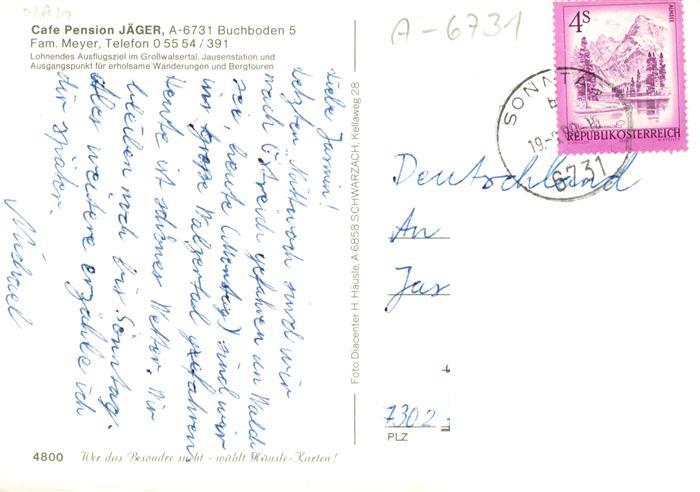 Cafe Pension JÄGER, A-6731 Buchboden 5
Fam. Meyer, Telefon 0 55 54 / 391
Lohnendes Ausflugsziel im Großwalsertal. Jausenstation und
Ausgangspunkt für erholsame Wanderungen und Bergtouren
Liebe Jasmin!
Letzten Mittwoch sind wir
nach Östreich gefahren an Wald
see, heute (Montag) sind wir
ins große Walzertal gefahren
Heute ist schönes Wetter. Wir
bleiben noch bis Sonntag.
Alles weitere erzähle ich
dir später.
Michael
4800 Wer das Besondre sucht - wählt Häusle-Karten!
Foto Diacenter H. Häusle, A-6858 SCHWARZACH, Kellaweg 28
A-6731
4S
ALMSEE
REPUBLIK ÖSTERREICH
SONNTA
6731
Deutschland
An
Jas
7302
PLZ